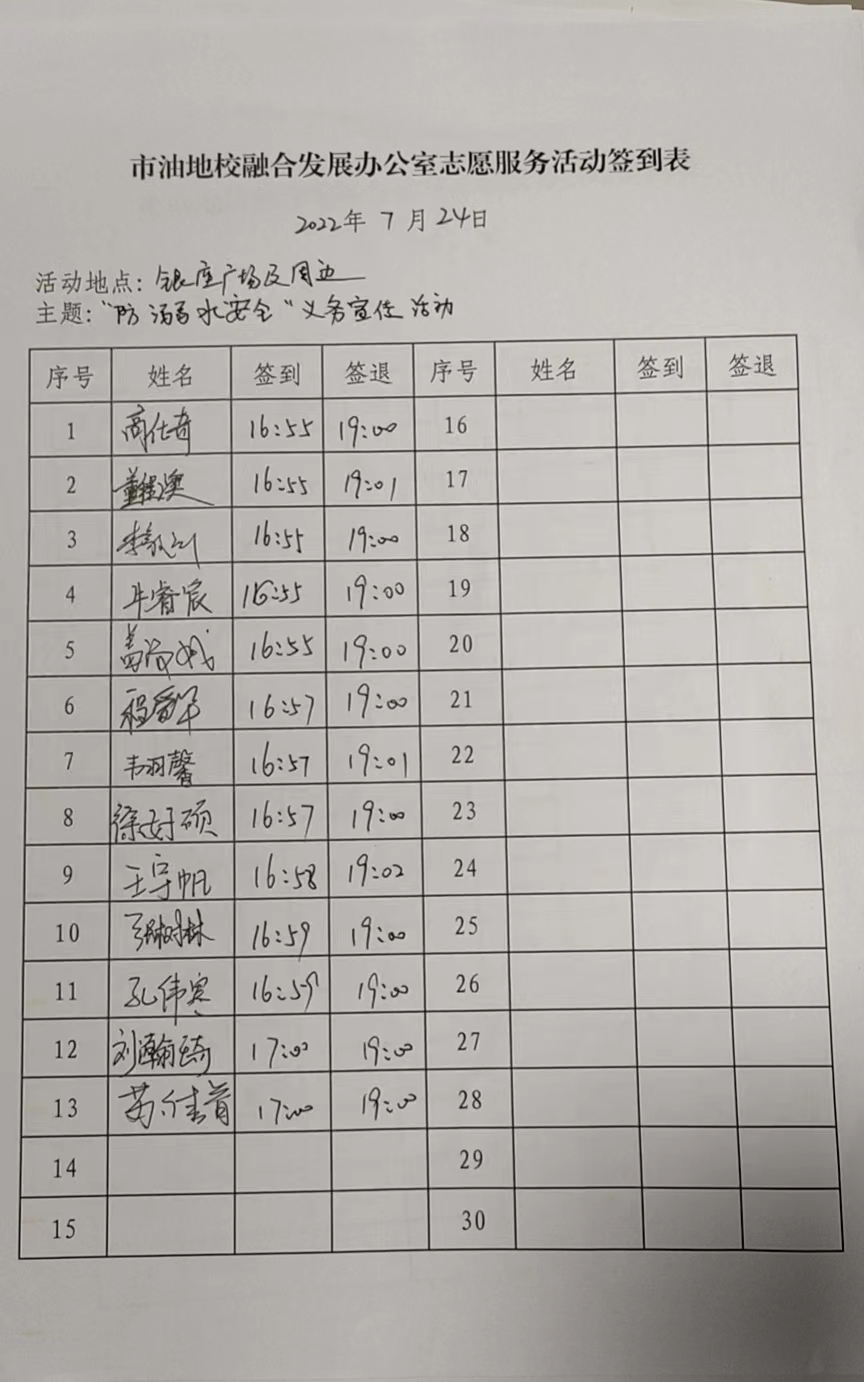 市油地校融合发展办公室志愿服务活动签到表
2022年 7 月 24日
活动地点：银座广场及周边
主题：“防溺水安全”义务宣传活动
序号 姓名 签到 签退 序号 姓名 签到 签退
1 高仕奇 16:55 19:00 16
2 16:55 19:01 17
3 16:55 19:00 18
4 牛睿宸 16:55 19:00 19
5 16:55 19:00 20
6 16:57 19:00 21
7 韦羽馨 16:57 19:01 22
8 徐好硕 16:57 19:00 23
9 王宇帆 16:58 19:02 24
10 张树林 16:59 19:00 25
11 孔伟 16:59 19:00 26
12 刘瀚琦 17:00 19:00 27
13 苗佳音 17:00 19:00 28
14 29
15 30